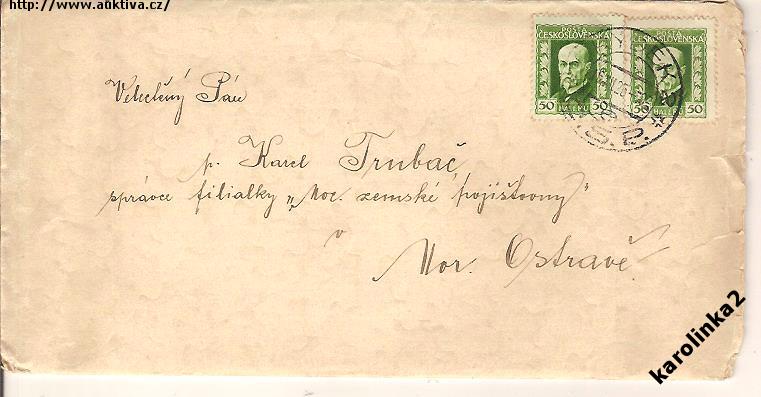 http://www.auktiva.cz/
POŠTA
ČESKOSLOVENSKÁ
50 50
HALÉŘŮ
POŠTA
ČESKOSLOVENSKÁ
50 50
HALÉŘŮ
Velectěný Pán
p. Karel Trubač
správce filialky „Mor. zemské pojišťovny"
v
Mor. Ostravě
karolinka2